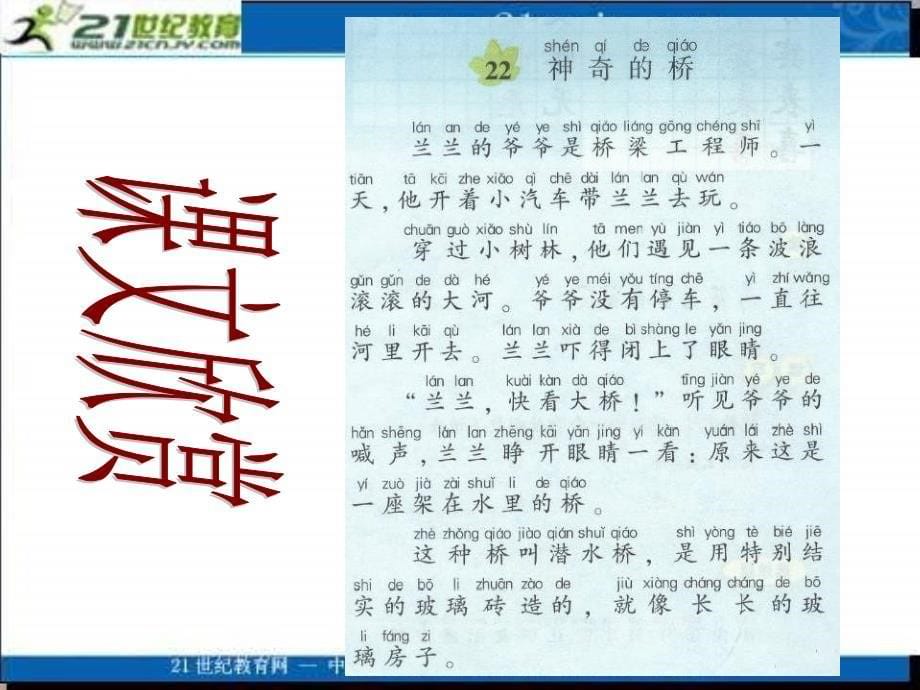 21世纪教育
WWW.21CNJY.COM
课文欣赏
shén qí de qiáo
22 神奇的桥
lán an de yé ye shì qiáo liáng gōng chéng shī yì
兰兰的爷爷是桥梁工程师。一
tiān tā kāi zhe xiǎo qì chē dài lán lan qù wán
天,他开着小汽车带兰兰去玩。
chuān guò xiǎo shù lín tā men yù jiàn yì tiáo bō làng
穿过小树林,他们遇见一条波浪
gǔn gǔn de dà hé yé ye méi yǒu tíng chē yì zhí wǎng
滚滚的大河。爷爷没有停车,一直往
hé li kāi qù lán lan xià de bì shàng le yǎn jing
河里开去。兰兰吓得闭上了眼睛。
lán lan kuài kàn dà qiáo tīng jiàn yé ye de
“兰兰,快看大桥!”听见爷爷的
hǎn shēng lán lan zhēng kāi yǎn jing yi kàn yuán lái zhè shì
喊声,兰兰睁开眼睛一看:原来这是
yí zuò jià zài shuǐ li de qiáo
一座架在水里的桥。
zhè zhǒng qiáo jiào qián shuǐ qiáo shì yòng tè bié jiē
这种桥叫潜水桥,是用特别结
shi de bō li zhuān zào de jiù xiàng cháng cháng de bō
实的玻璃砖造的,就像长长的玻
li fáng zi
璃房子。
21世纪教育网 — 中